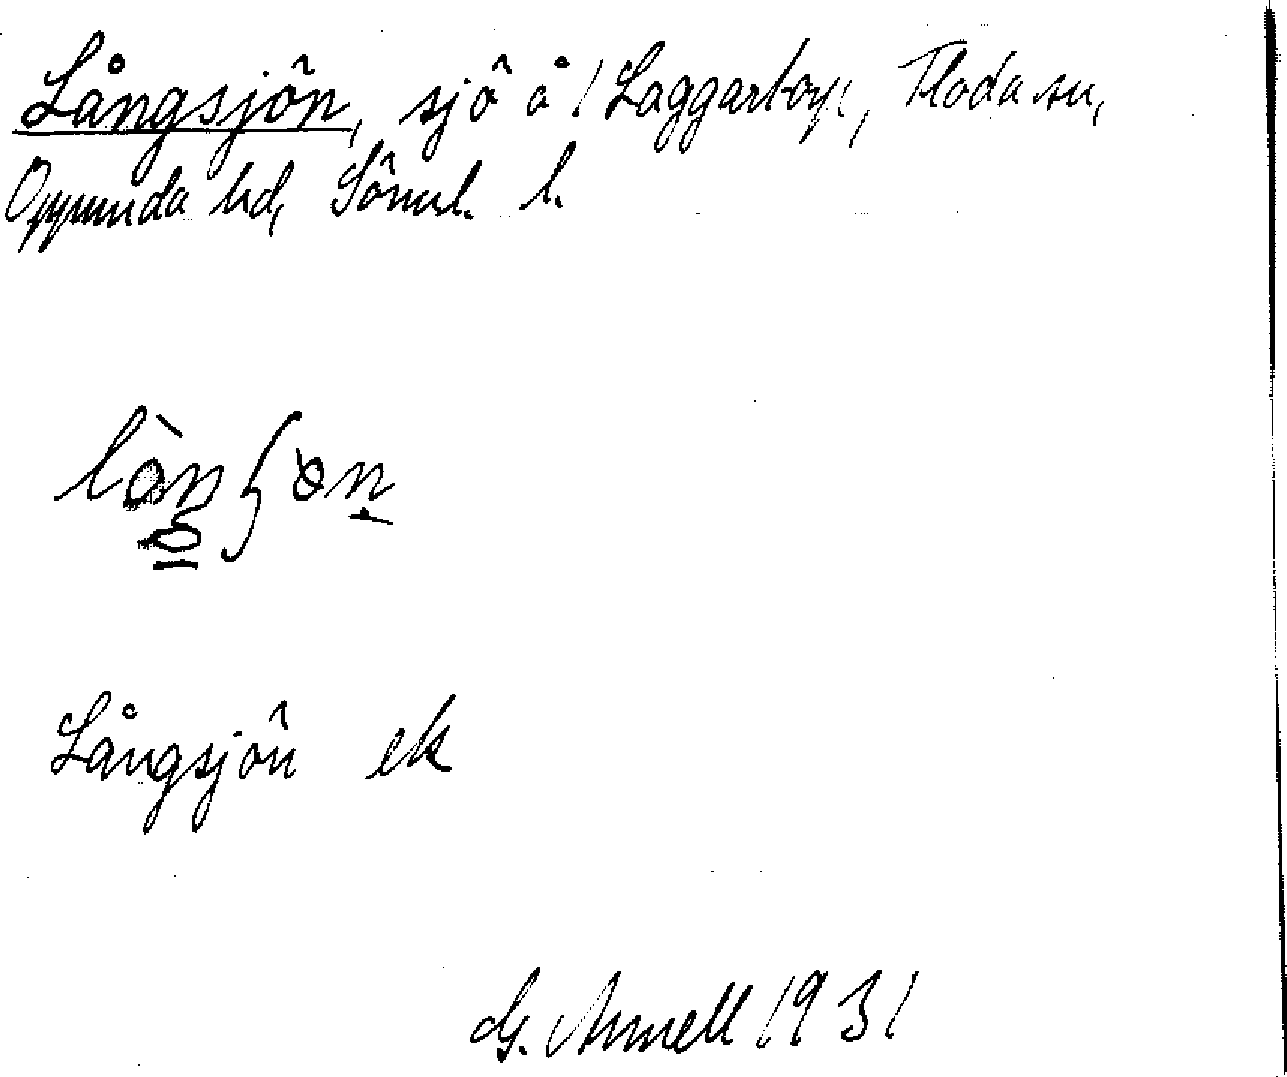 Långsjön, sjö å / Laggarboy, Floda sn,
Oppunda hd, Söderml. l.
Långsjön ek
G. Annell 1931